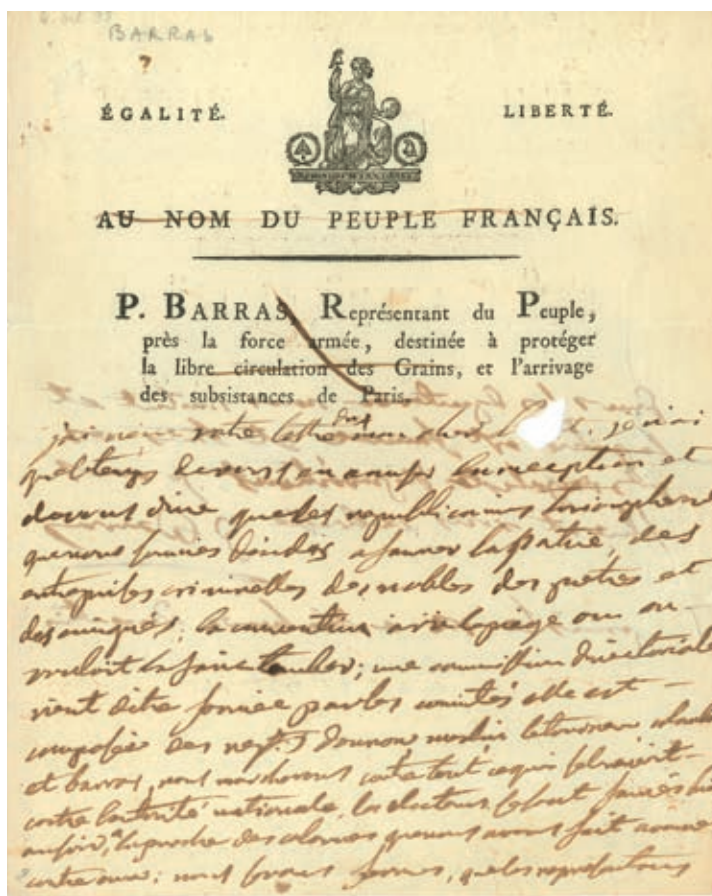 BARRAS
?
ÉGALITÉ. LIBERTÉ.
AU NOM DU PEUPLE FRANÇAIS.
P. BARRAS, Représentant du Peuple,
près la force armée, destinée à protéger
la libre circulation des Grains, et l'arrivage
des subsistances de Paris.
votre lettre mon cher je n'ai
que le temps de vous en la reception et
de vous dire que les republicains
que nous sommes décidés a sauver la patrie, des
entreprises criminelles des nobles des pretres et
des emigrés; la convention a vu le piege ou on
vouloit la faire tomber; une commission directoriale
vient detre formée par les comités elle est
composée des Daunou merlin letourneur
et barras, nous marcherons contre tout ce qui
contre lautorité nationale, les electeurs se sont
au soir, a laproche des colonnes que nous avons fait
contre eux; nous fermes, que les